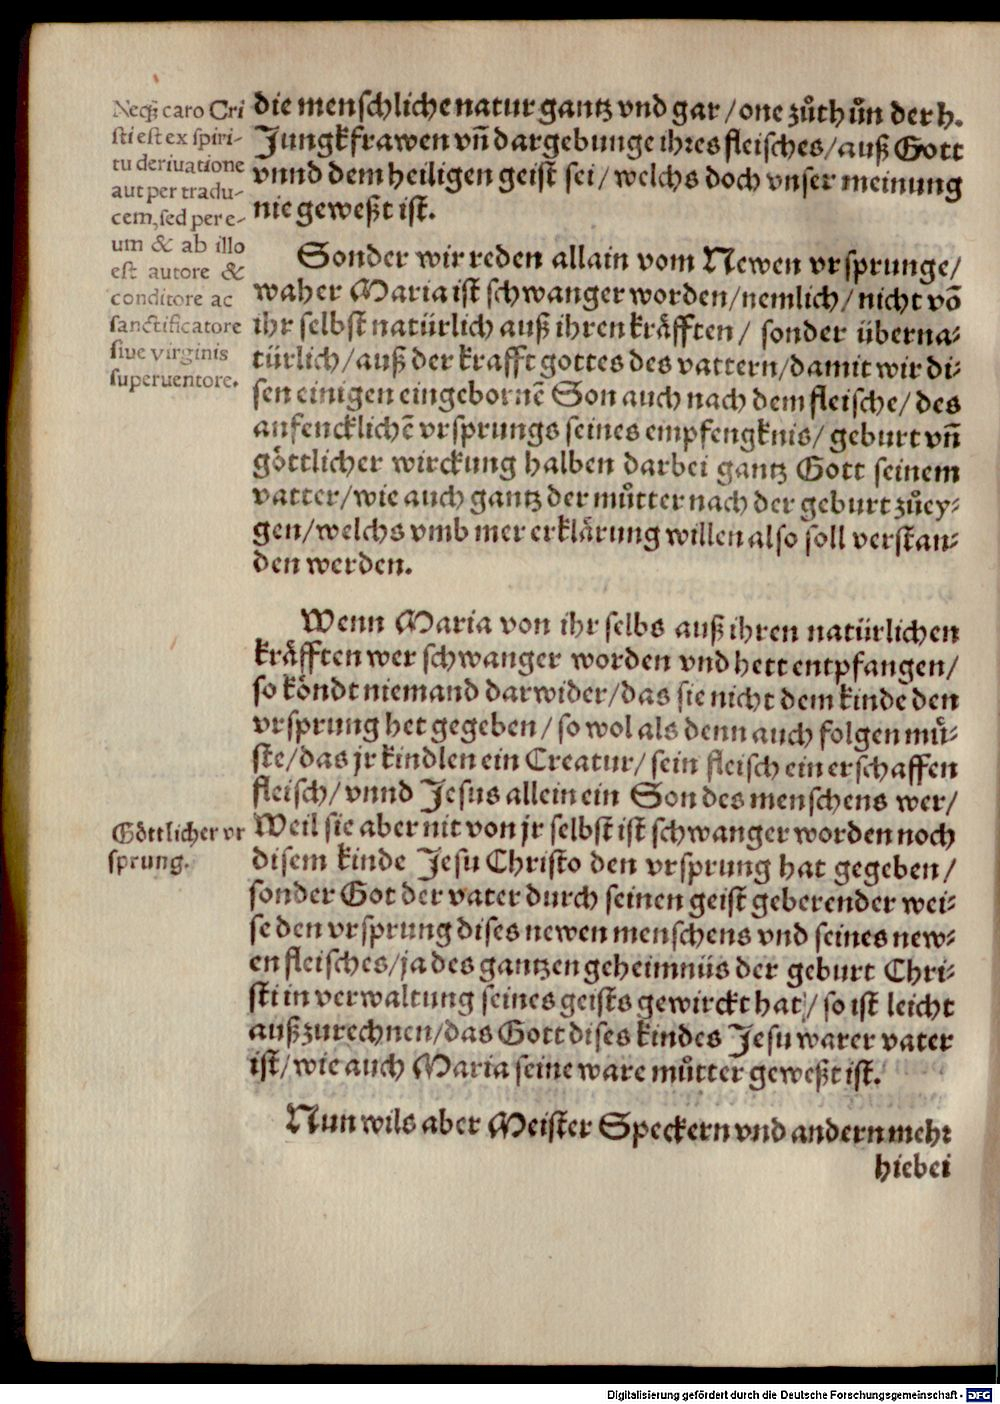 Neqꝫ caro Cri
sti est ex spiri-
tu deriuatione
aut per tradu-
cem, sed per e-
um & ab illo
est autore &
conditore ac
sanctificatore
siue virginis
superuentore.
die menschliche natur gantz vnd gar / one zůthůn der h.
Jungkfrawen vñ dargebunge ihres fleisches / auß Gott
vnnd dem heiligen geist sei / welchs doch vnser meinung
nie geweßt ist.
Sonder wir reden allain vom Newen vrsprunge /
waher Maria ist schwanger worden / nemlich / nicht võ
ihr selbst natürlich auß ihren kräfften / sonder überna-
türlich / auß der krafft gottes des vattern / damit wir di-
sen einigen eingebornẽ Son auch nach dem fleische / des
anfencklichẽ vrsprungs seines empfengknis / geburt vñ
göttlicher wirckung halben darbei gantz Gott seinem
vatter / wie auch gantz der můtter nach der geburt zůey-
gen / welchs vmb mer erklärung willen also soll verstan-
den werden.
Wenn Maria von ihr selbs auß ihren natürlichen
kräfften wer schwanger worden vnd hett entpfangen /
so köndt niemand darwider / das sie nicht dem kinde den
vrsprung het gegeben / so wol als denn auch folgen mů-
ste / das jr kindlen ein Creatur / sein fleisch ein erschaffen
fleisch / vnnd Jesus allein ein Son des menschens wer /
Göttlicher vr
sprung.
Weil sie aber nit von jr selbst ist schwanger worden noch
disem kinde Jesu Christo den vrsprung hat gegeben /
sonder Got der vater durch seinen geist geberender wei-
se den vrsprung dises newen menschens vnd seines new-
en fleisches / ja des gantzen geheimnüs der geburt Chri-
sti in verwaltung seines geists gewirckt hat / so ist leicht
außzurechnen / das Gott dises kindes Jesu warer vater
ist / wie auch Maria seine ware můtter geweßt ist.
Nun wils aber Meister Speckern vnd andern mehr
hiebei
Digitalisierung gefördert durch die Deutsche Forschungsgemeinschaft - DFG